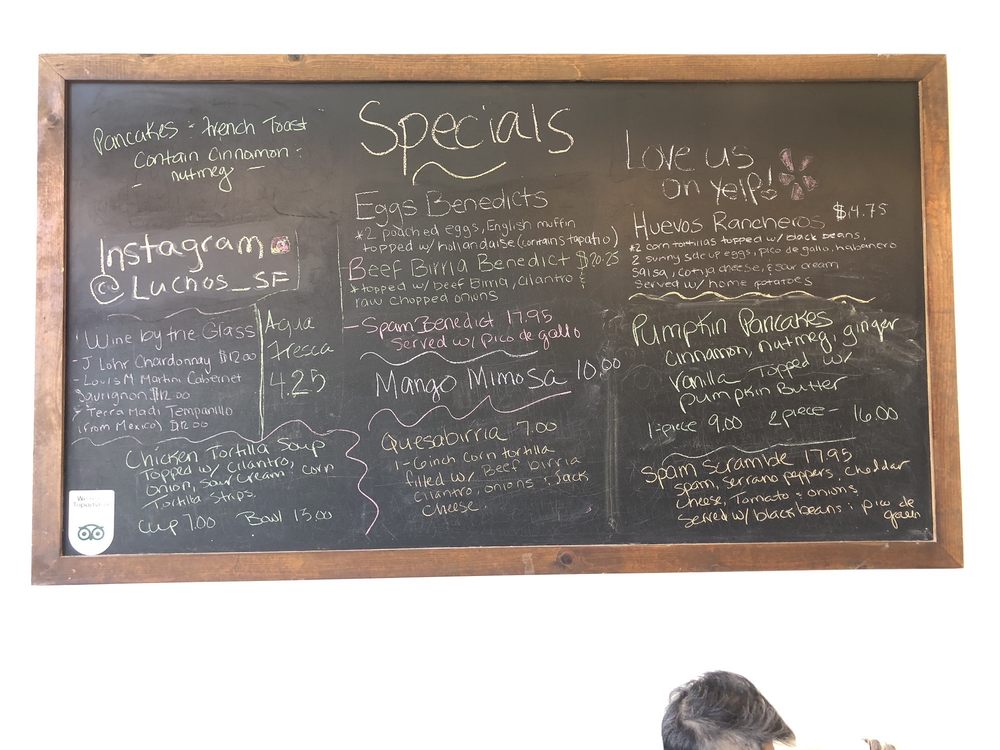 Pancakes & French Toast
Contain Cinnamon &
- nutmeg -
Instagram
@Luchos_SF
Wine by the Glass
- J Lohr Chardonnay $12.00
- Louis M Martini Cabernet
Sauvignon $12.00
- Terra Madi Tempanillo
(From Mexico) $12.00
Agua
Fresca
4.25
Chicken Tortilla Soup
Topped w/ cilantro,
onion, sour cream & corn
Tortilla strips.
Cup 7.00 Bowl 13.00
Specials
Eggs Benedicts
*2 poached eggs, English muffin
topped w/ hollandaise (contains tapatio)
Beef Birria Benedict $20.25
*topped w/ beef birria, cilantro &
raw chopped onions
- Spam Benedict 17.95
Served w/ pico de gallo
Mango Mimosa 10.00
Quesabirria 7.00
1- 6 inch corn tortilla
filled w/ Beef birria
cilantro, onions & Jack
cheese.
Love us
on yelp!
Huevos Rancheros $14.75
*2 corn tortillas topped w/ black beans,
2 sunny side up eggs, pico de gallo, habanero
salsa, cotija cheese, & sour cream
Served w/ home potatoes
Pumpkin Pancakes
cinnamon, nutmeg, ginger
vanilla Topped w/
pumpkin Butter
1-piece 9.00 2 piece- 16.00
Spam Scramble 17.95
spam, serrano peppers, cheddar
cheese, Tomato & onions
Served w/ black beans & pico de
gallo